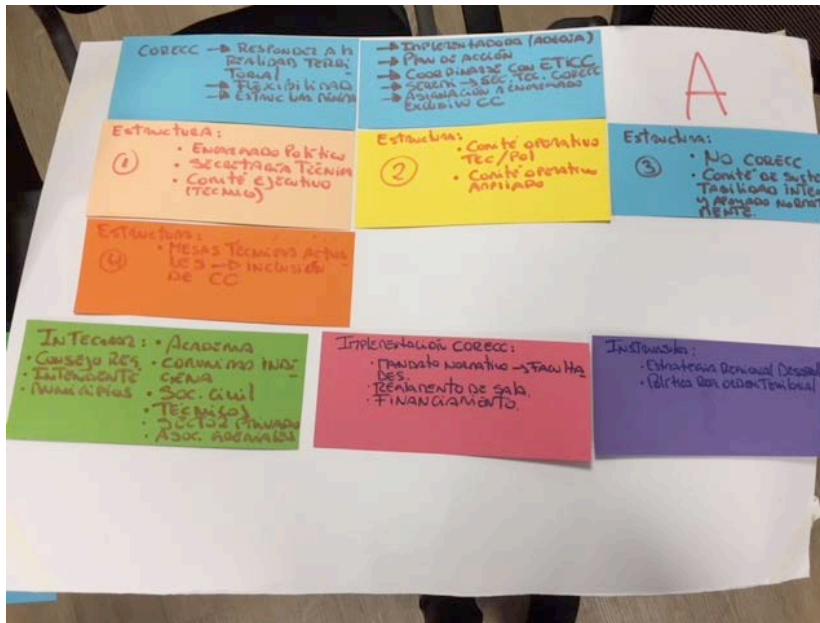 CORECC → RESPONDER A LA
REALIDAD TERRI-
TORIAL
→ FLEXIBILIDAD
→ ESTRUCTURA MÍNIMA
→ IMPLEMENTADORA
→ PLAN DE ACCIÓN
→ COORDINARSE CON ETICC
→ SEREMI → SEC. TEC. CORECC
→ ASIGNACIÓN A ENCARGADO
EXCLUSIVO CC
A
ESTRUCTURA:
1
• ENCARGADO POLÍTICO
• SECRETARÍA TÉCNICA
• COMITÉ EJECUTIVO
(TÉCNICO)
ESTRUCTURA:
2
• COMITÉ OPERATIVO
TEC/POL
• COMITÉ OPERATIVO
AMPLIADO
ESTRUCTURA:
3
• NO CORECC
• COMITÉ DE SUSTEN
TABILIDAD
Y APOYADO NORMATI
MENTE.
ESTRUCTURA:
4
• MESAS TÉCNICAS ACTUA-
LES → INCLUSIÓN
DE CC
INTEGRAR:
• CONSEJO REG.
• INTENDENTE
• MUNICIPIOS
• ACADEMIA
• COMUNIDAD INDÍ-
GENA
• SOC. CIVIL
• TÉCNICOS
• SECTOR PRIVADO
• ASOC. GREMIALES
IMPLEMENTACIÓN CORECC:
• MANDATO NORMATIVO → FACULTA
DES.
• REGLAMENTO DE SALA.
• FINANCIAMIENTO.
• ESTRATEGIA REGIONAL DESARR
• POLÍTICA TERRITORIAL